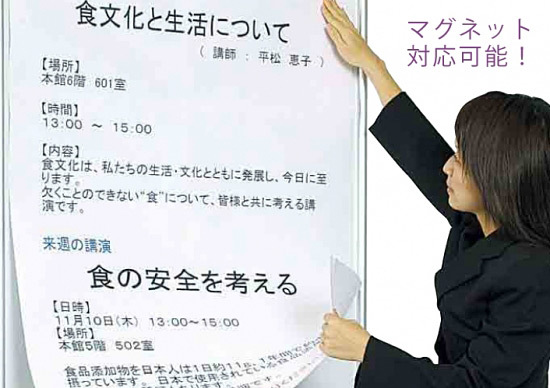 食文化と生活について
( 講師 : 平松 恵子 )
マグネット
対応可能！
【場所】
本館6階 601室
【時間】
13:00 ～ 15:00
【内容】
食文化は、私たちの生活・文化とともに発展し、今日に至
ります。
欠くことのできない“食”について、皆様と共に考える講
演です。
来週の講演
食の安全を考える
【日時】
11月10日(木) 13:00～15:00
【場所】
本館5階 502室
食品添加物を日本人は1日約11g、1年間で約
摂っています。日本で使用されている食品